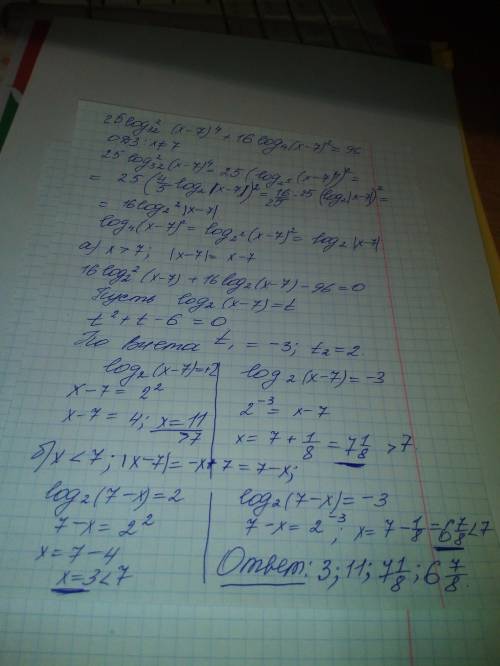 25log₃₂² (x-7)⁴ + 16 log₄(x-7)² = 96
ОДЗ: x≠7
25 log₃₂²(x-7)⁴ = 25 (log₂⁵ (x-7)⁴)² =
= 25 (4/5 log₂|x-7|)² = 16/25 · 25 (log₂|x-7|)² =
= 16log₂²|x-7|
log₄(x-7)² = log₂²(x-7)² = log₂|x-7|
а) x>7; |x-7| = x-7
16log₂²(x-7) + 16log₂(x-7) - 96 = 0
Пусть log₂(x-7) = t
t² + t - 6 = 0
По Виета t₁ = -3; t₂ = 2.
log₂(x-7) = 2
x-7 = 2²
x-7 = 4; x = 11 >7
log₂(x-7) = -3
2⁻³ = x-7
x = 7 + 1/8 = 7 1/8 >7
б) x<7; |x-7| = -x+7 = 7-x;
log₂(7-x) = 2
7-x = 2²
x = 7-4
x = 3<7
log₂(7-x) = -3
7-x = 2⁻³; x = 7 - 1/8 = 6 7/8 <7
Ответ: 3; 11; 7 1/8; 6 7/8.